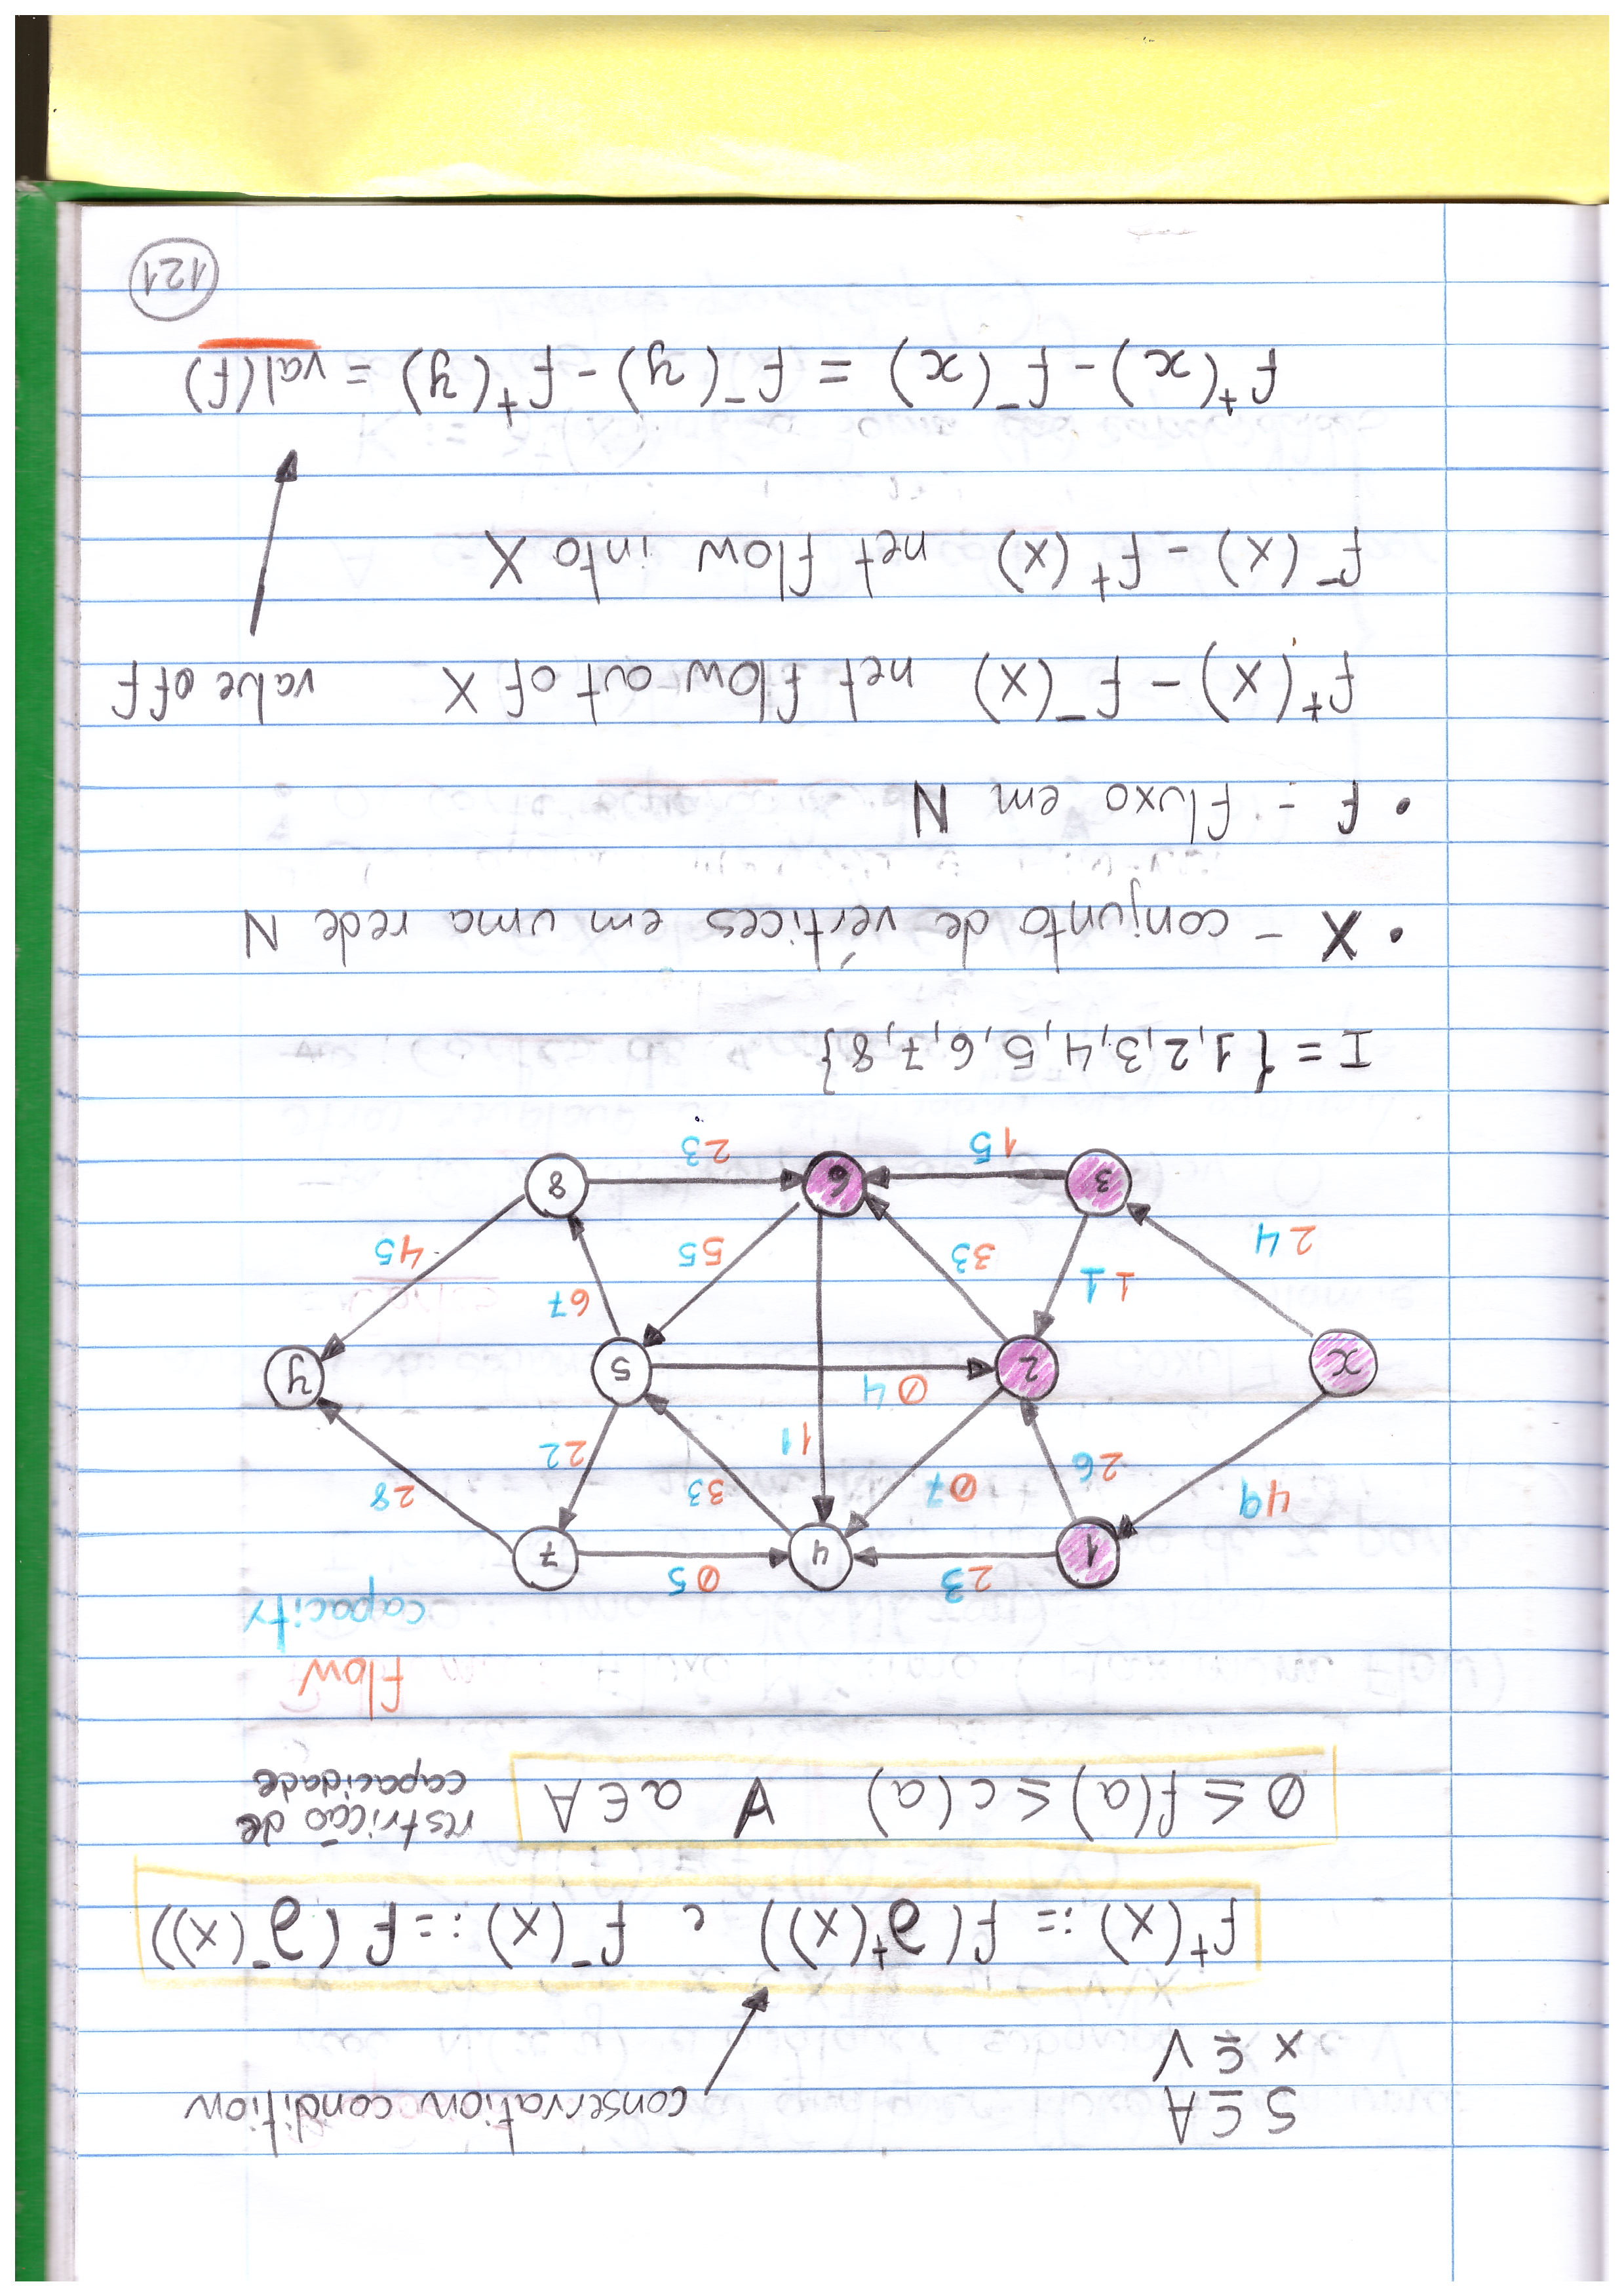 S ⊆ A
x ⊆ V
conservation condition
f⁺(x) := f(∂⁺(x)) e f⁻(x) := f(∂⁻(x))
0 ≤ f(a) ≤ c(a) ∀ a ∈ A
restricão de
capacidade
flow
capacity
1 23 4 05 7
49 26 07 33 28
11 22
x 2 04 5 y
11 67
24 33 55 45
3 6 8
15 23
I = {1,2,3,4,5,6,7,8}
• X - conjunto de vértices em uma rede N
• f - fluxo em N
f⁺(x) - f⁻(x) net flow out of X value of f
f⁻(x) - f⁺(x) net flow into X
f⁺(x) - f⁻(x) = f⁻(y) - f⁺(y) = val(f)
121